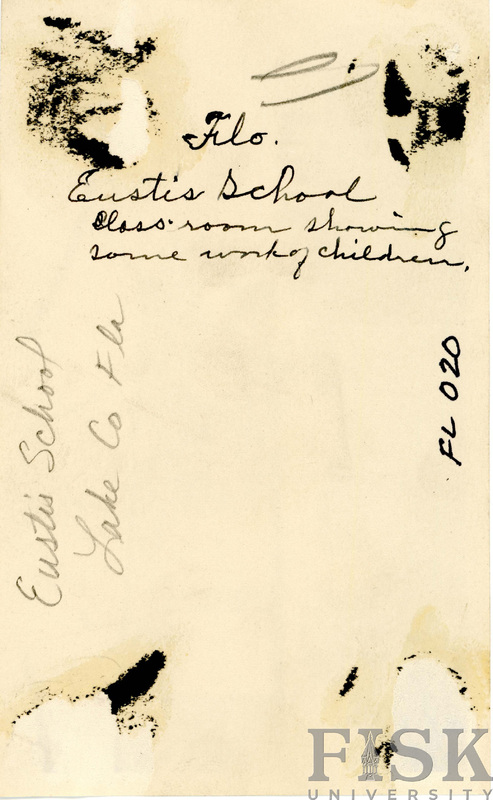 Flo.
Eustis School
Class room showing
some work of children.
Eustis School
Lake Co Fla
FL 020
FISK
UNIVERSITY